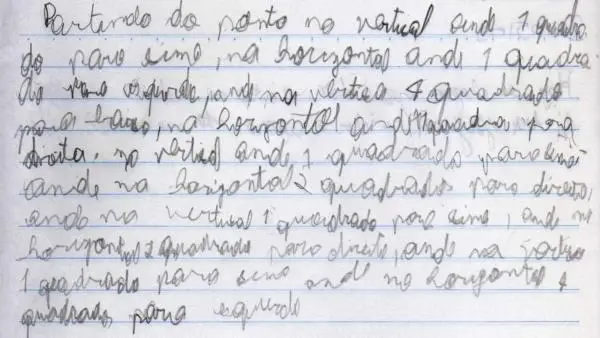 Partindo do ponto na vertical ande 1 quadra
do para cima, na horizontal ande 1 quadra
do para esquerda, ande na vertica 4 quadrado
para baixo, na horzontal ande quadra para
direita. na vertical ande 1 quadrado para cima
ande na horizontal 2 quadrados para direita,
ande na vertical 1 quadrado para cima, ande na
horizontal quadrado para direita, ande na
1 quadrado para cima ande na horizontal 4
quadrados para esquerda